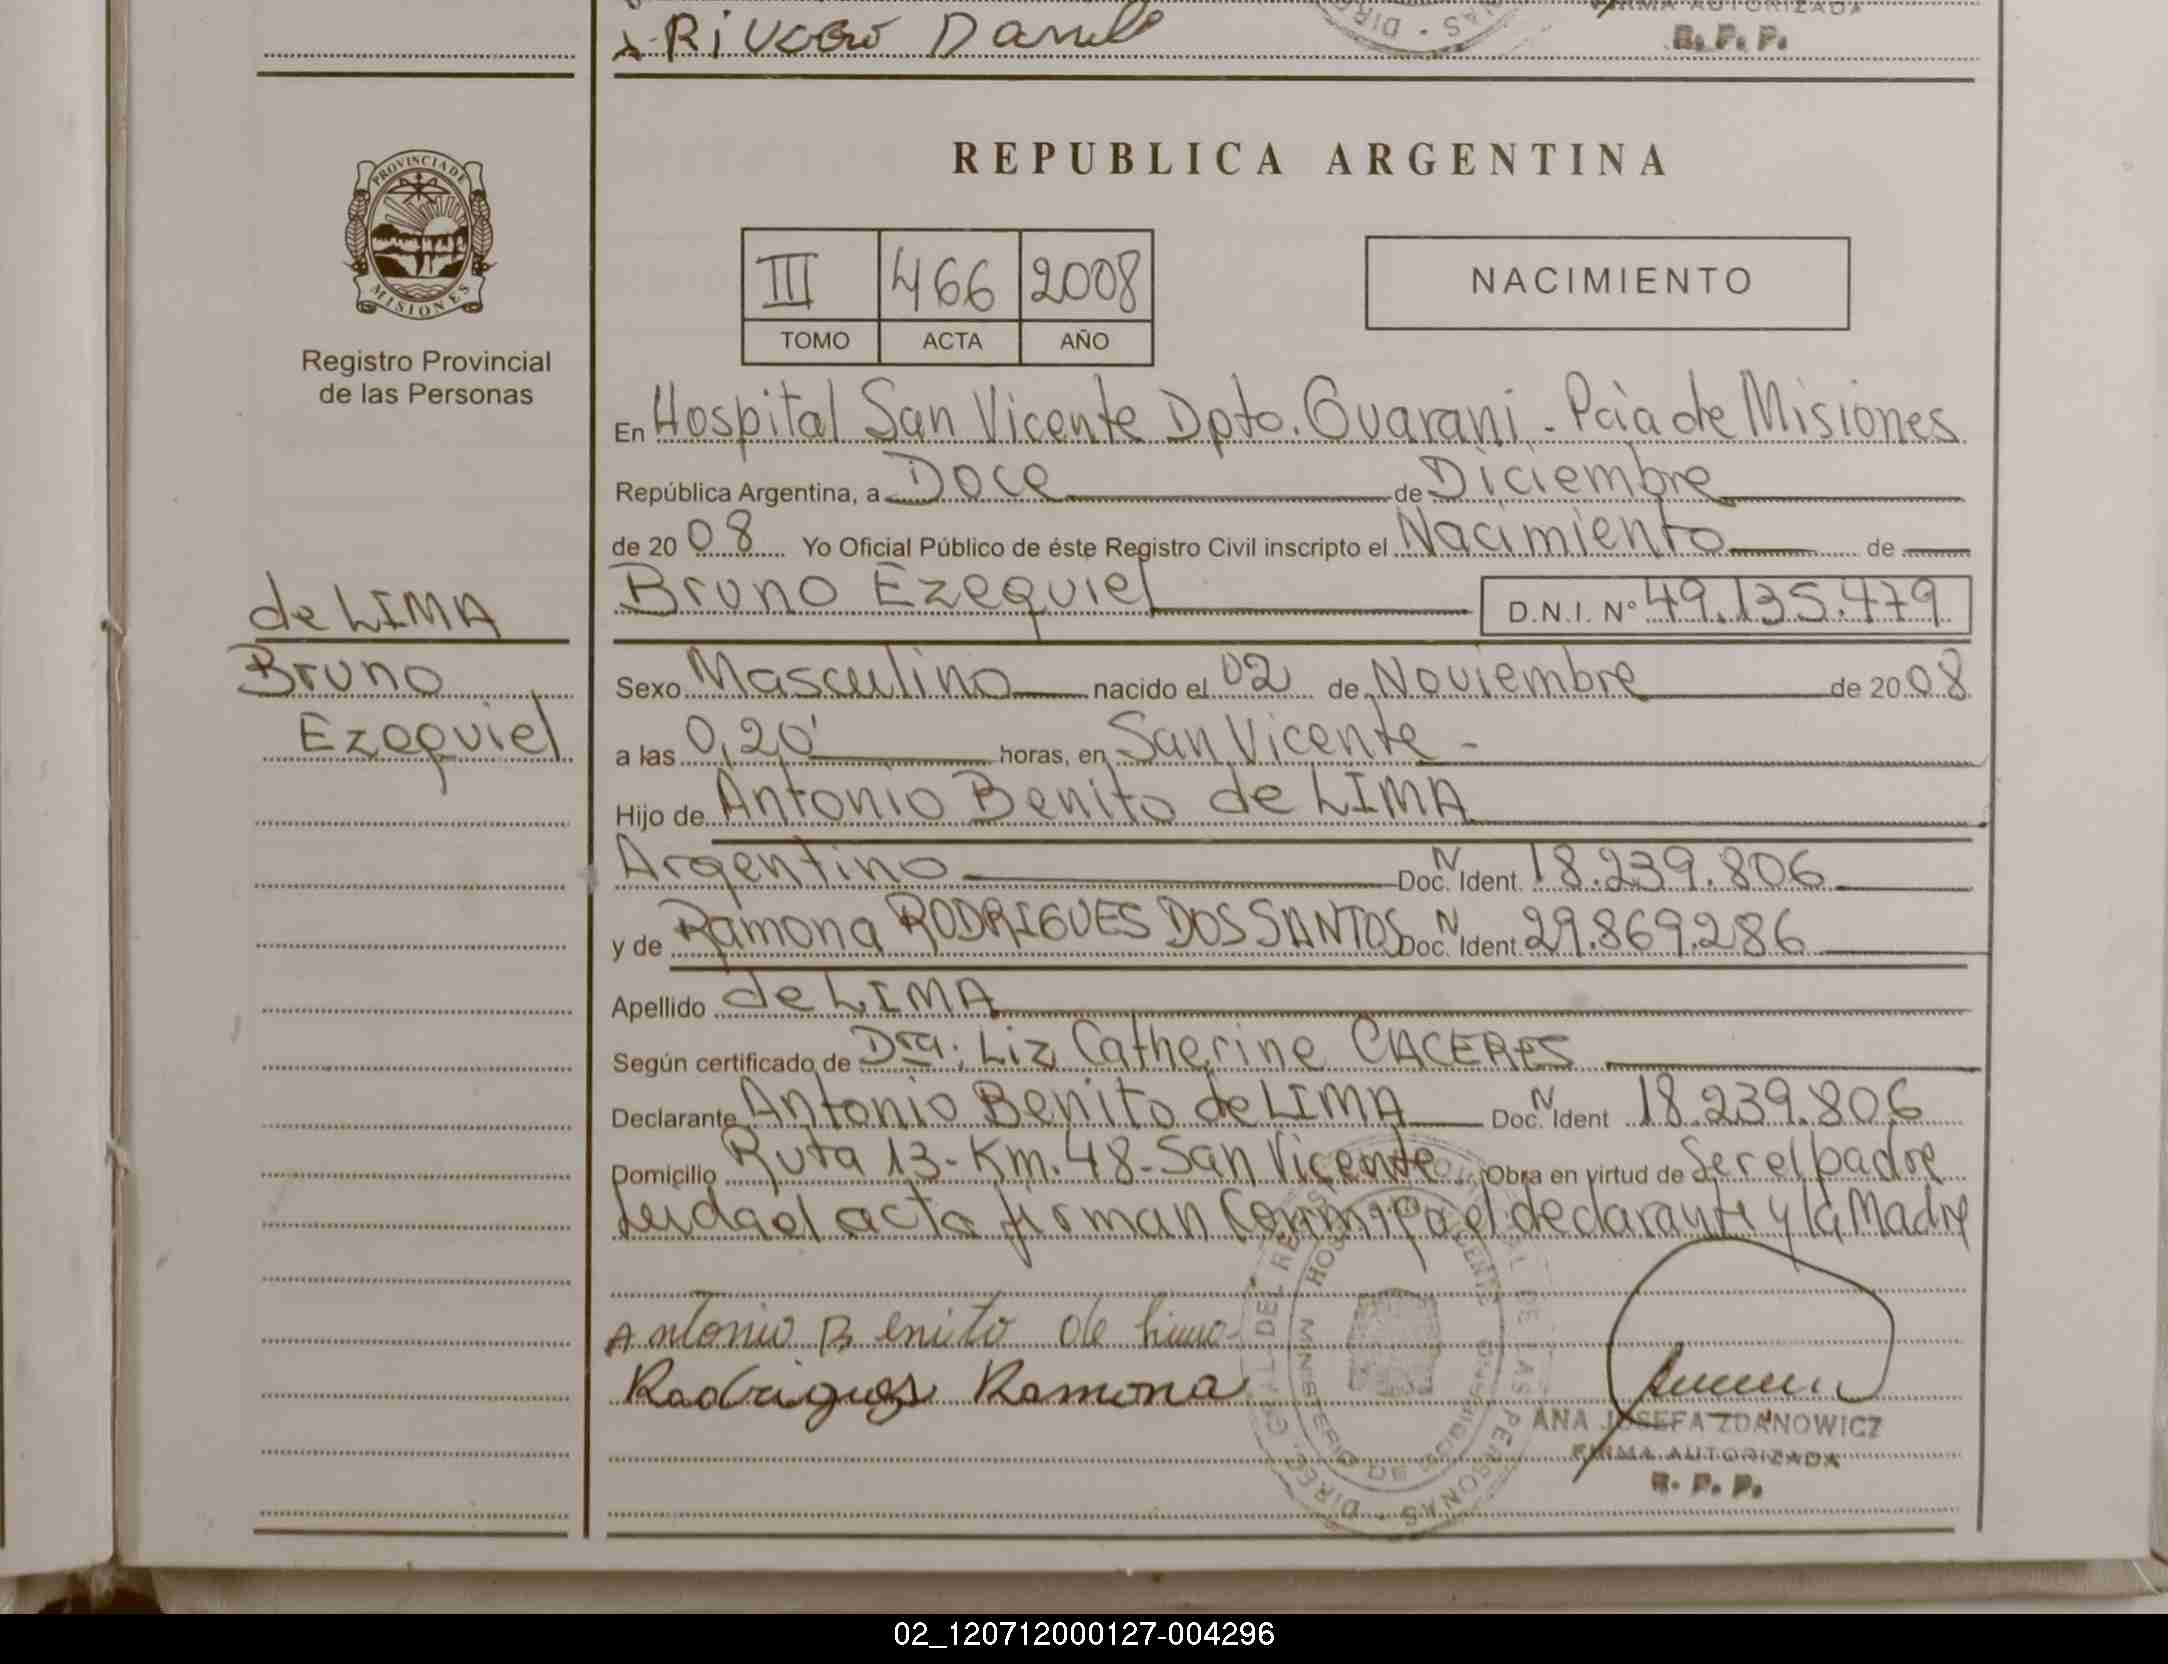 Rivero Danil
FIRMA AUTORIZADA
R. P. P.
PROVINCIA DE
MISIONES
Registro Provincial
de las Personas
REPUBLICA ARGENTINA
III 466 2008
TOMO ACTA AÑO
NACIMIENTO
En Hospital San Vicente Dpto. Guarani - Pcia de Misiones
República Argentina, a Doce de Diciembre
de 20 08 Yo Oficial Público de éste Registro Civil inscripto el Nacimiento de
de LIMA
Bruno
Ezequiel
Bruno Ezequiel D.N.I. Nº 49.135.479
Sexo Masculino nacido el 02 de Noviembre de 20 08
a las 0,20' horas, en San Vicente -
Hijo de Antonio Benito de LIMA
Argentino Doc. N Ident. 18.239.806
y de Ramona RODRIGUES DOS SANTOS Doc. N Ident. 29.869.286
Apellido de LIMA
Según certificado de Dra: Liz Catherine CACERES
Declarante Antonio Benito de LIMA Doc. N Ident 18.239.806
Domicilio Ruta 13 - Km. 48 - San Vicente Obra en virtud de Ser el padre
Leida el acta firman Conmigo el declarante y la Madre
Antonio Benito de Lima
Rodrigues Ramona
ANA JOSEFA ZDANOWICZ
FIRMA AUTORIZADA
R. P. P.
02_120712000127-004296